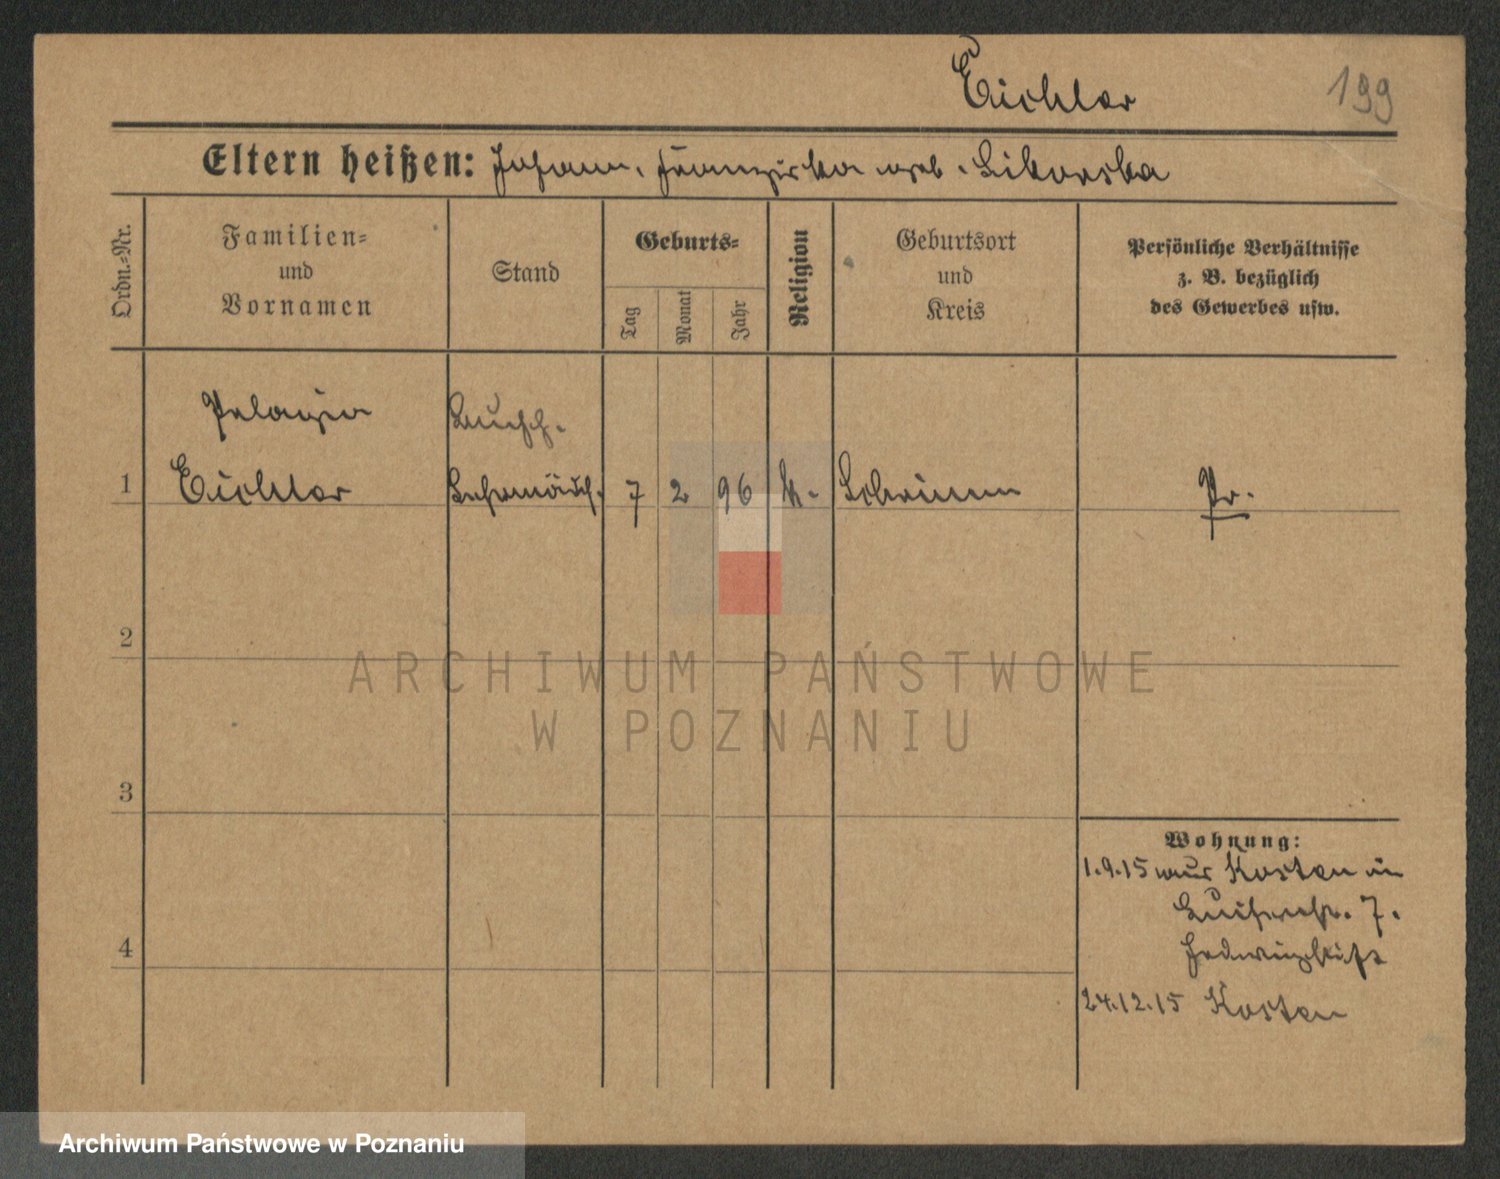 Eichler
199
Eltern heißen: Johann, Franziska geb. Sikorska
Ordn.-Nr.
Familien-
und
Vornamen
Stand
Geburts-
Tag
Monat
Jahr
Religion
Geburtsort
und
Kreis
Persönliche Verhältnisse
z. B. bezüglich
des Gewerbes usw.
Pelagia
Buchh.
1 Eichler Lehrmädch. 7 2 96 k. Schrimm Pr.
2
3
4
Wohnung:
1.9.15 aus Kosten in
Luisenstr. 7.
Hedwigstift
24.12.15 Kosten
ARCHIWUM PAŃSTWOWE
W POZNANIU
Archiwum Państwowe w Poznaniu